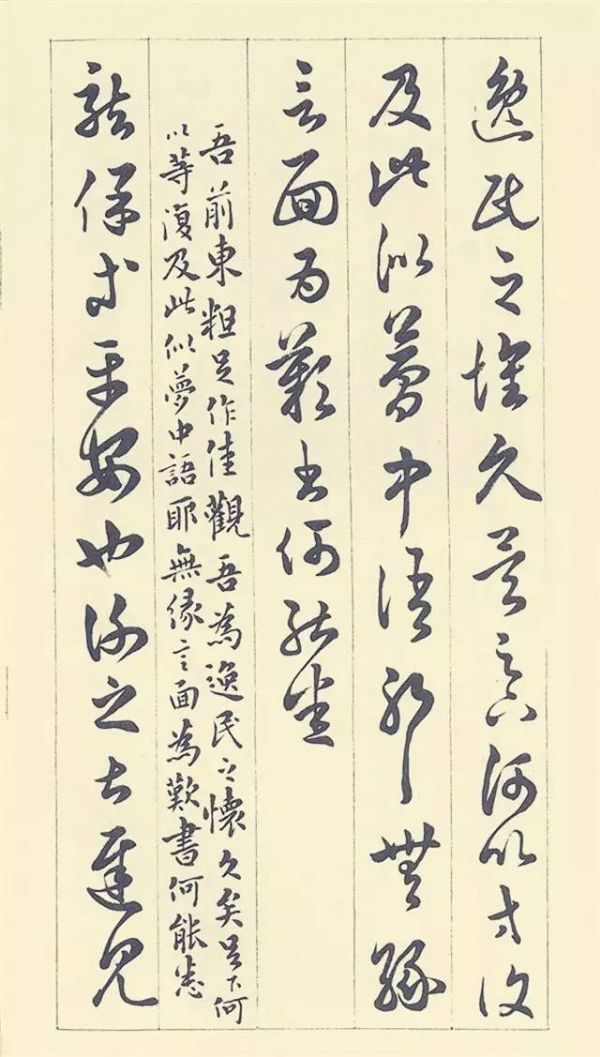 逸民之懷久矣足下何以等復
及此似夢中語耶無緣
言面為歎書何能悉
吾前東粗足作佳觀吾為逸民之懷久矣足下何
以等復及此似夢中語耶無緣言面為歎書何能悉
龍保等平安也謝之甚遲見